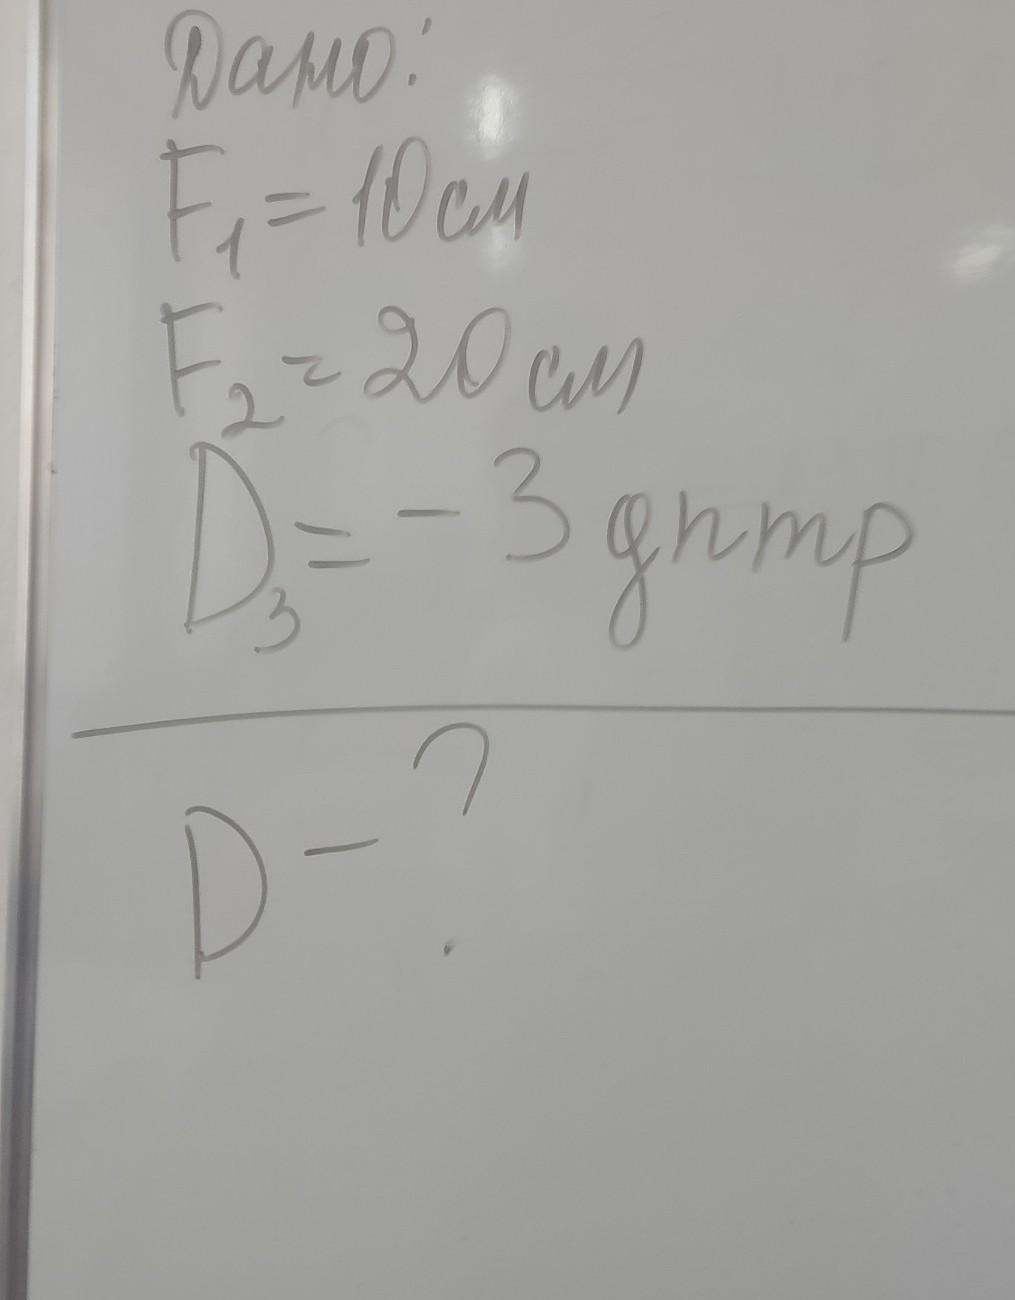 Дано:
F₁ = 10 см
F₂ = 20 см
D₃ = - 3 дптр
D - ?